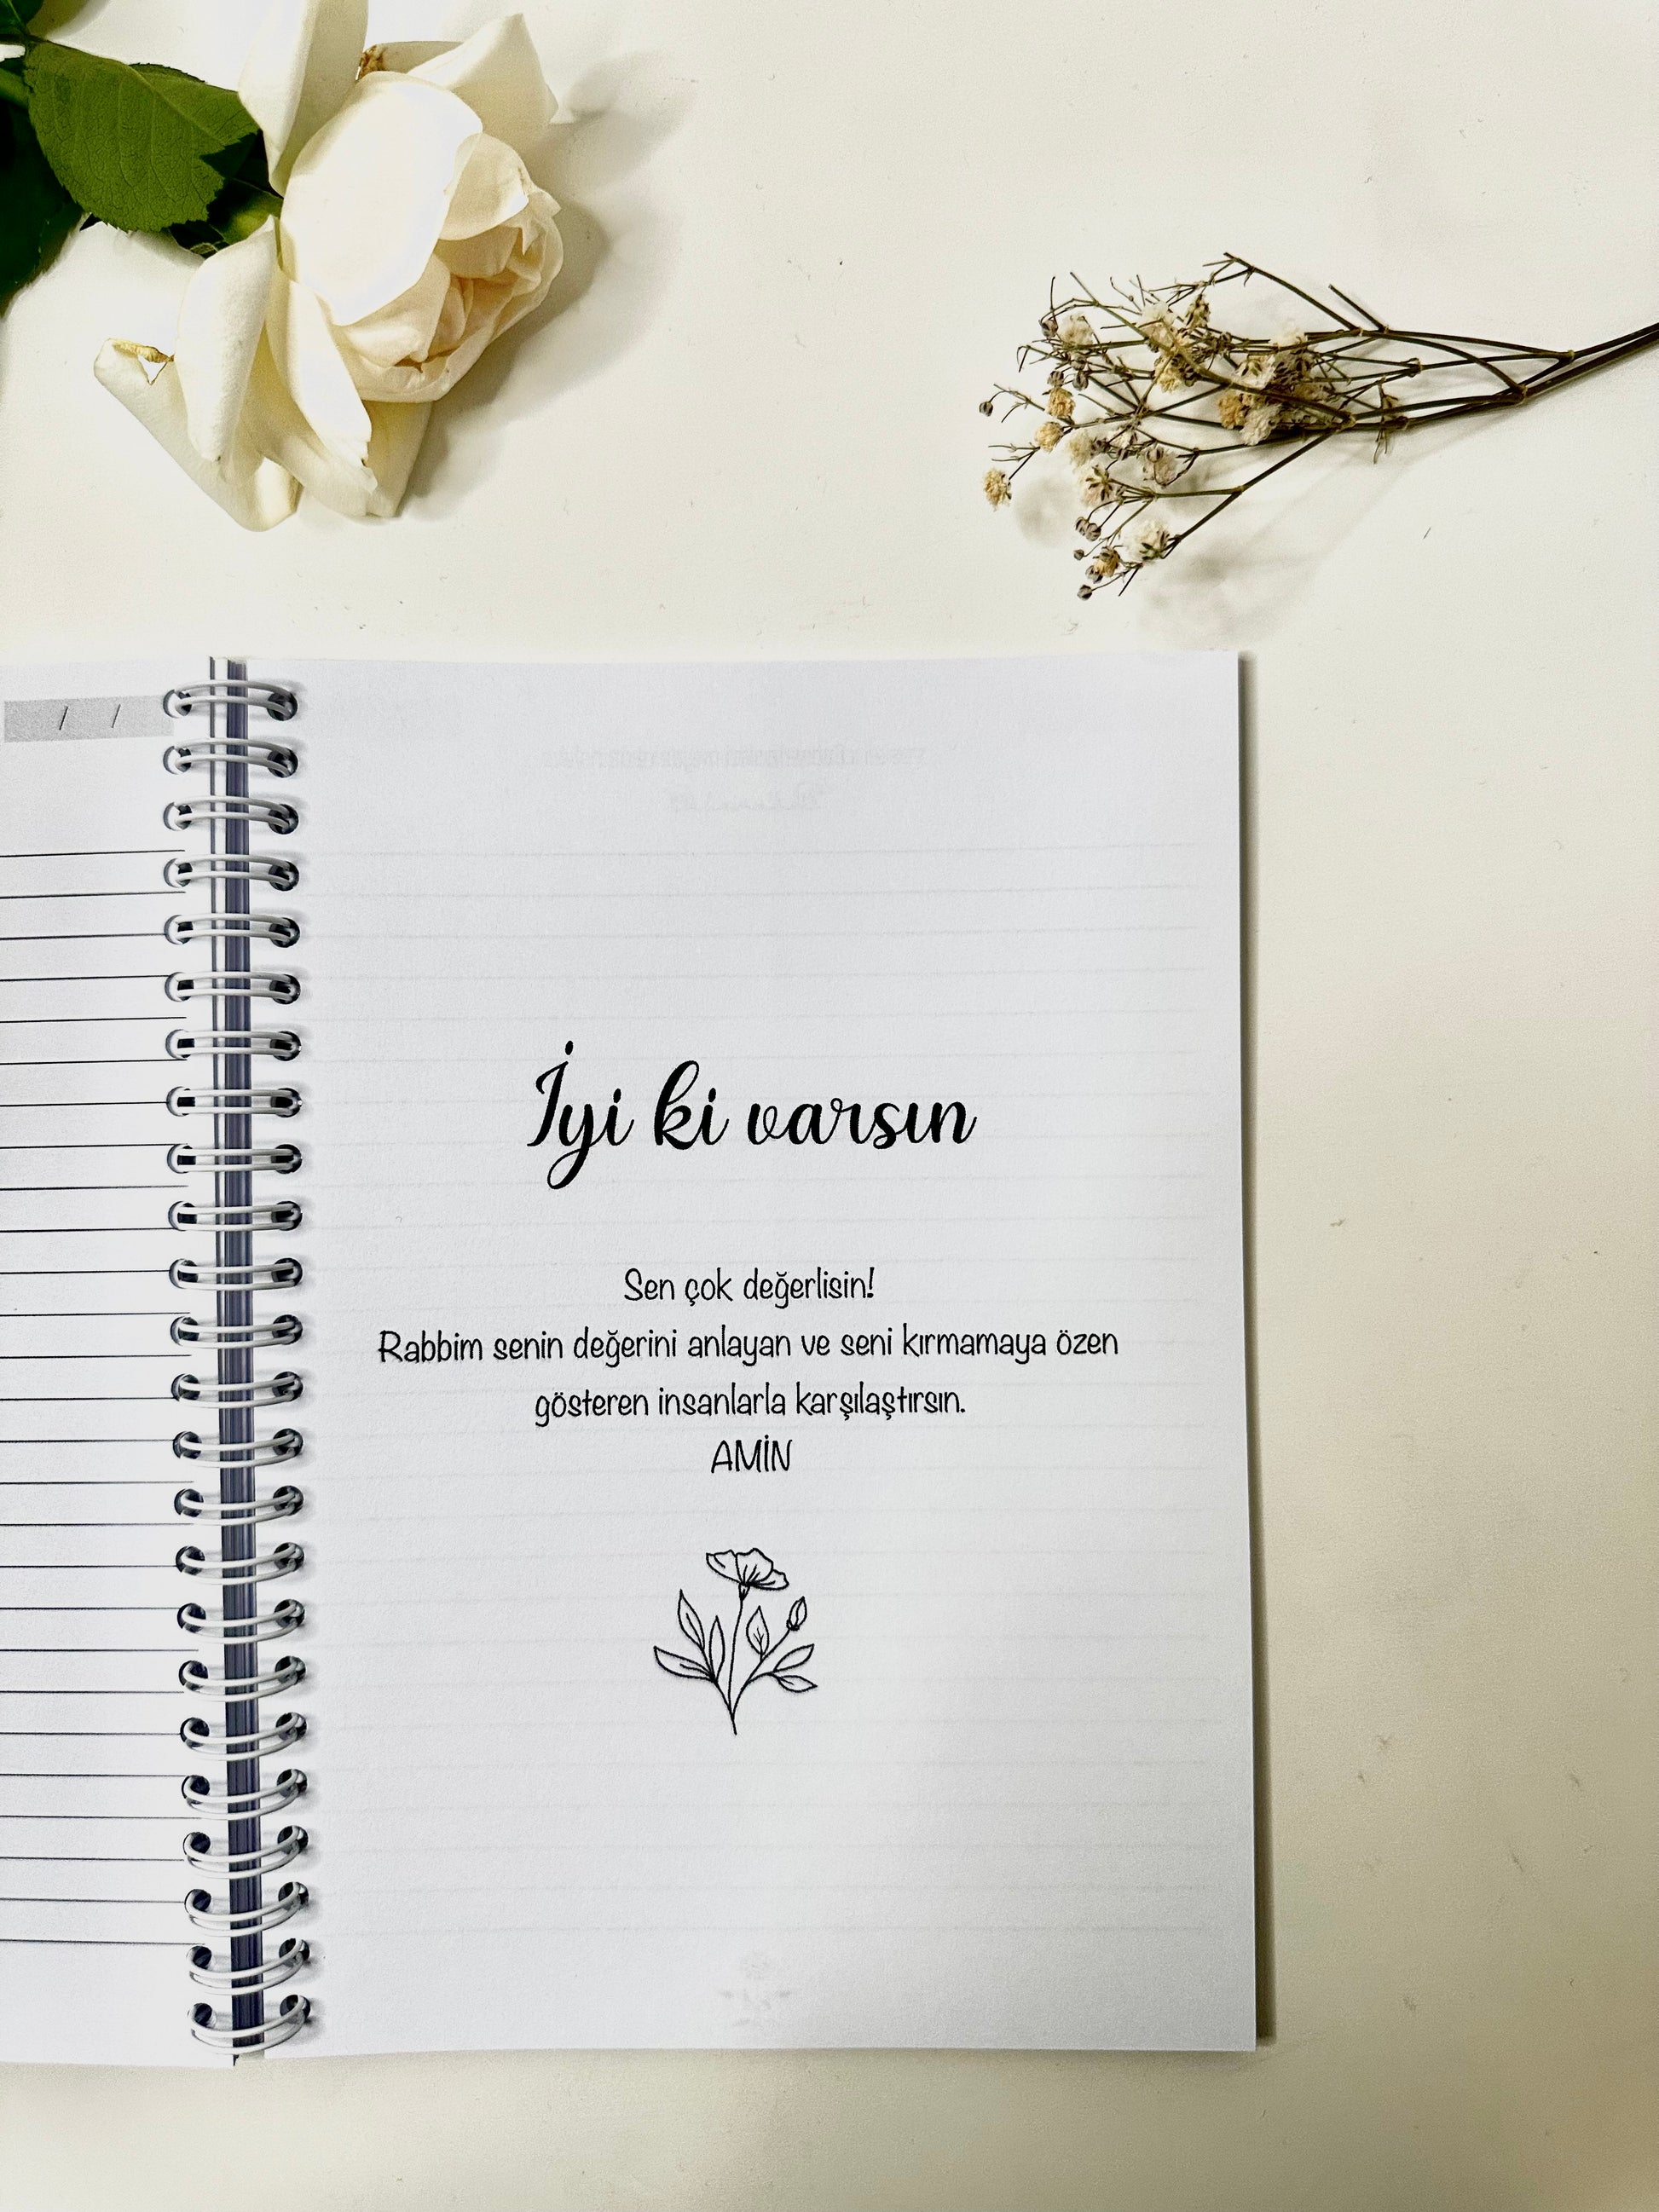 / /
İyi ki varsın
Sen çok değerlisin!
Rabbim senin değerini anlayan ve seni kırmamaya özen
gösteren insanlarla karşılaştırsın.
AMİN